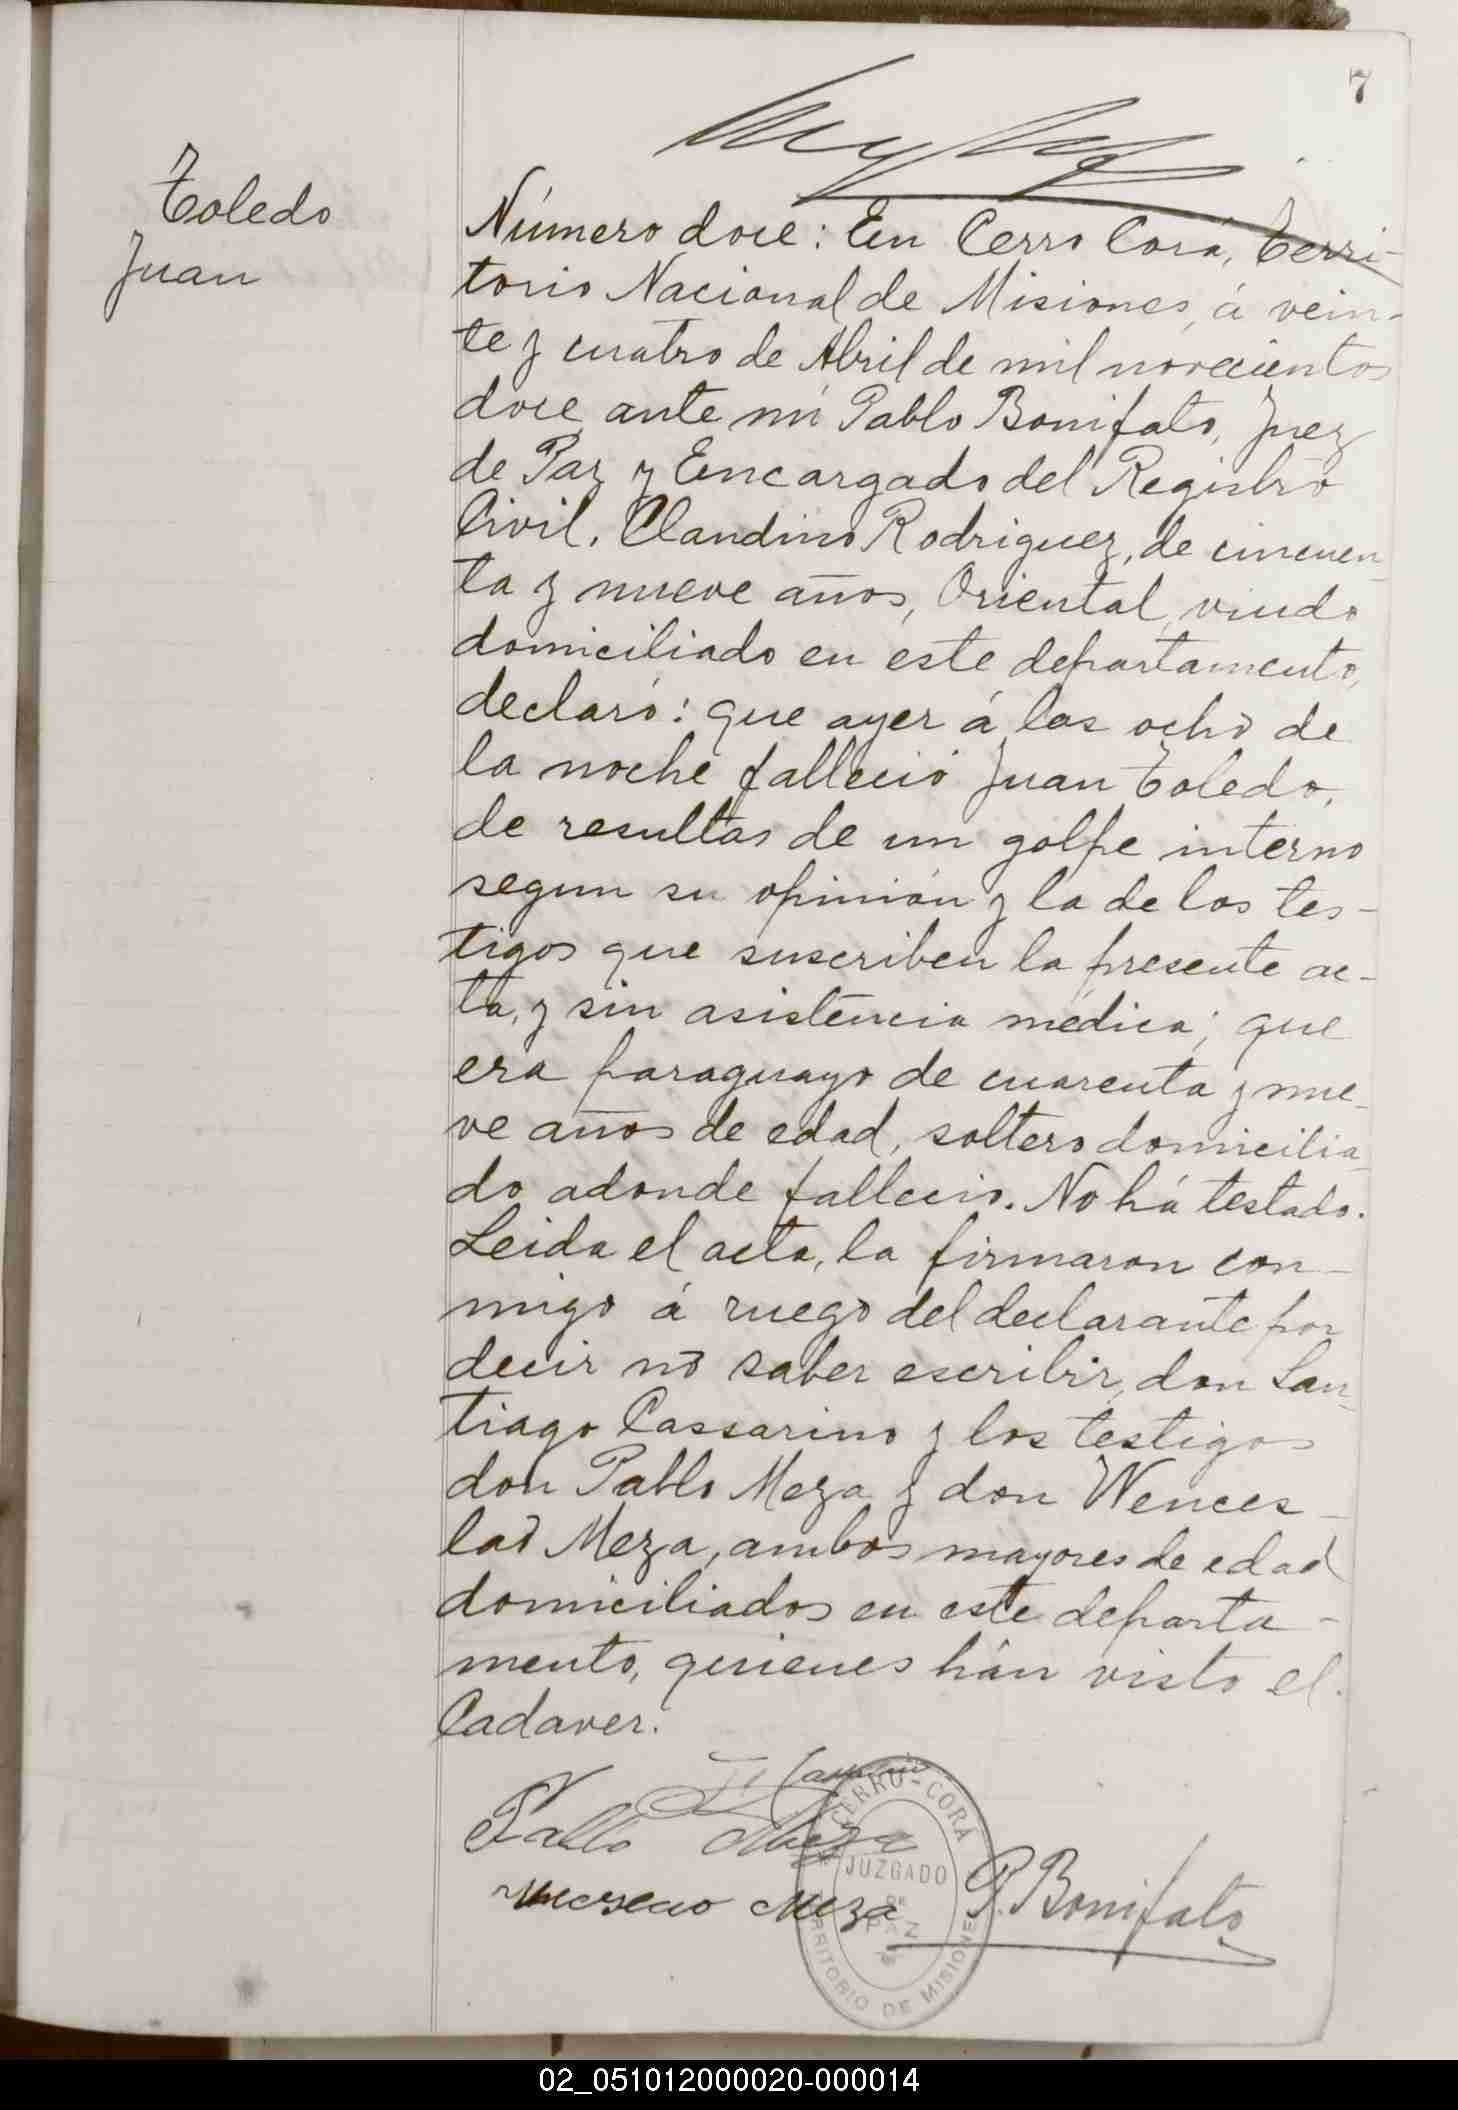 7
Toledo
Juan
Número doce: En Cerro Corá, Terri-
torio Nacional de Misiones, á vein-
te y cuatro de Abril de mil novecientos
doce, ante mi Pablo Bonifato, Juez
de Paz y Encargado del Registro
Civil, Claudino Rodriguez, de cincuen
ta y nueve años, Oriental, viudo
domiciliado en este departamento,
declaró: que ayer á las ocho de
la noche falleció Juan Toledo,
de resultas de un golpe interno
segun su opinión y la de los tes-
tigos que suscriben la presente ac-
ta, y sin asistencia médica; que
era paraguayo de cuarenta y nue-
ve años de edad, soltero domicilia-
do adonde fallecio. No há testado.
Leida el acta, la firmaron con-
migo á ruego del declarante por
decir nó saber escribir, don San-
tiago Cassarino y los testigos
don Pablo Meza y don Wences-
lao Meza, ambos mayores de edad
domiciliados en este departa-
mento, quienes hán visto el
Cadaver.
Pablo Meza
Meza
P. Bonifato
CERRO-CORÁ
JUZGADO
DE
PAZ
TERRITORIO DE MISIONES
02_051012000020-000014